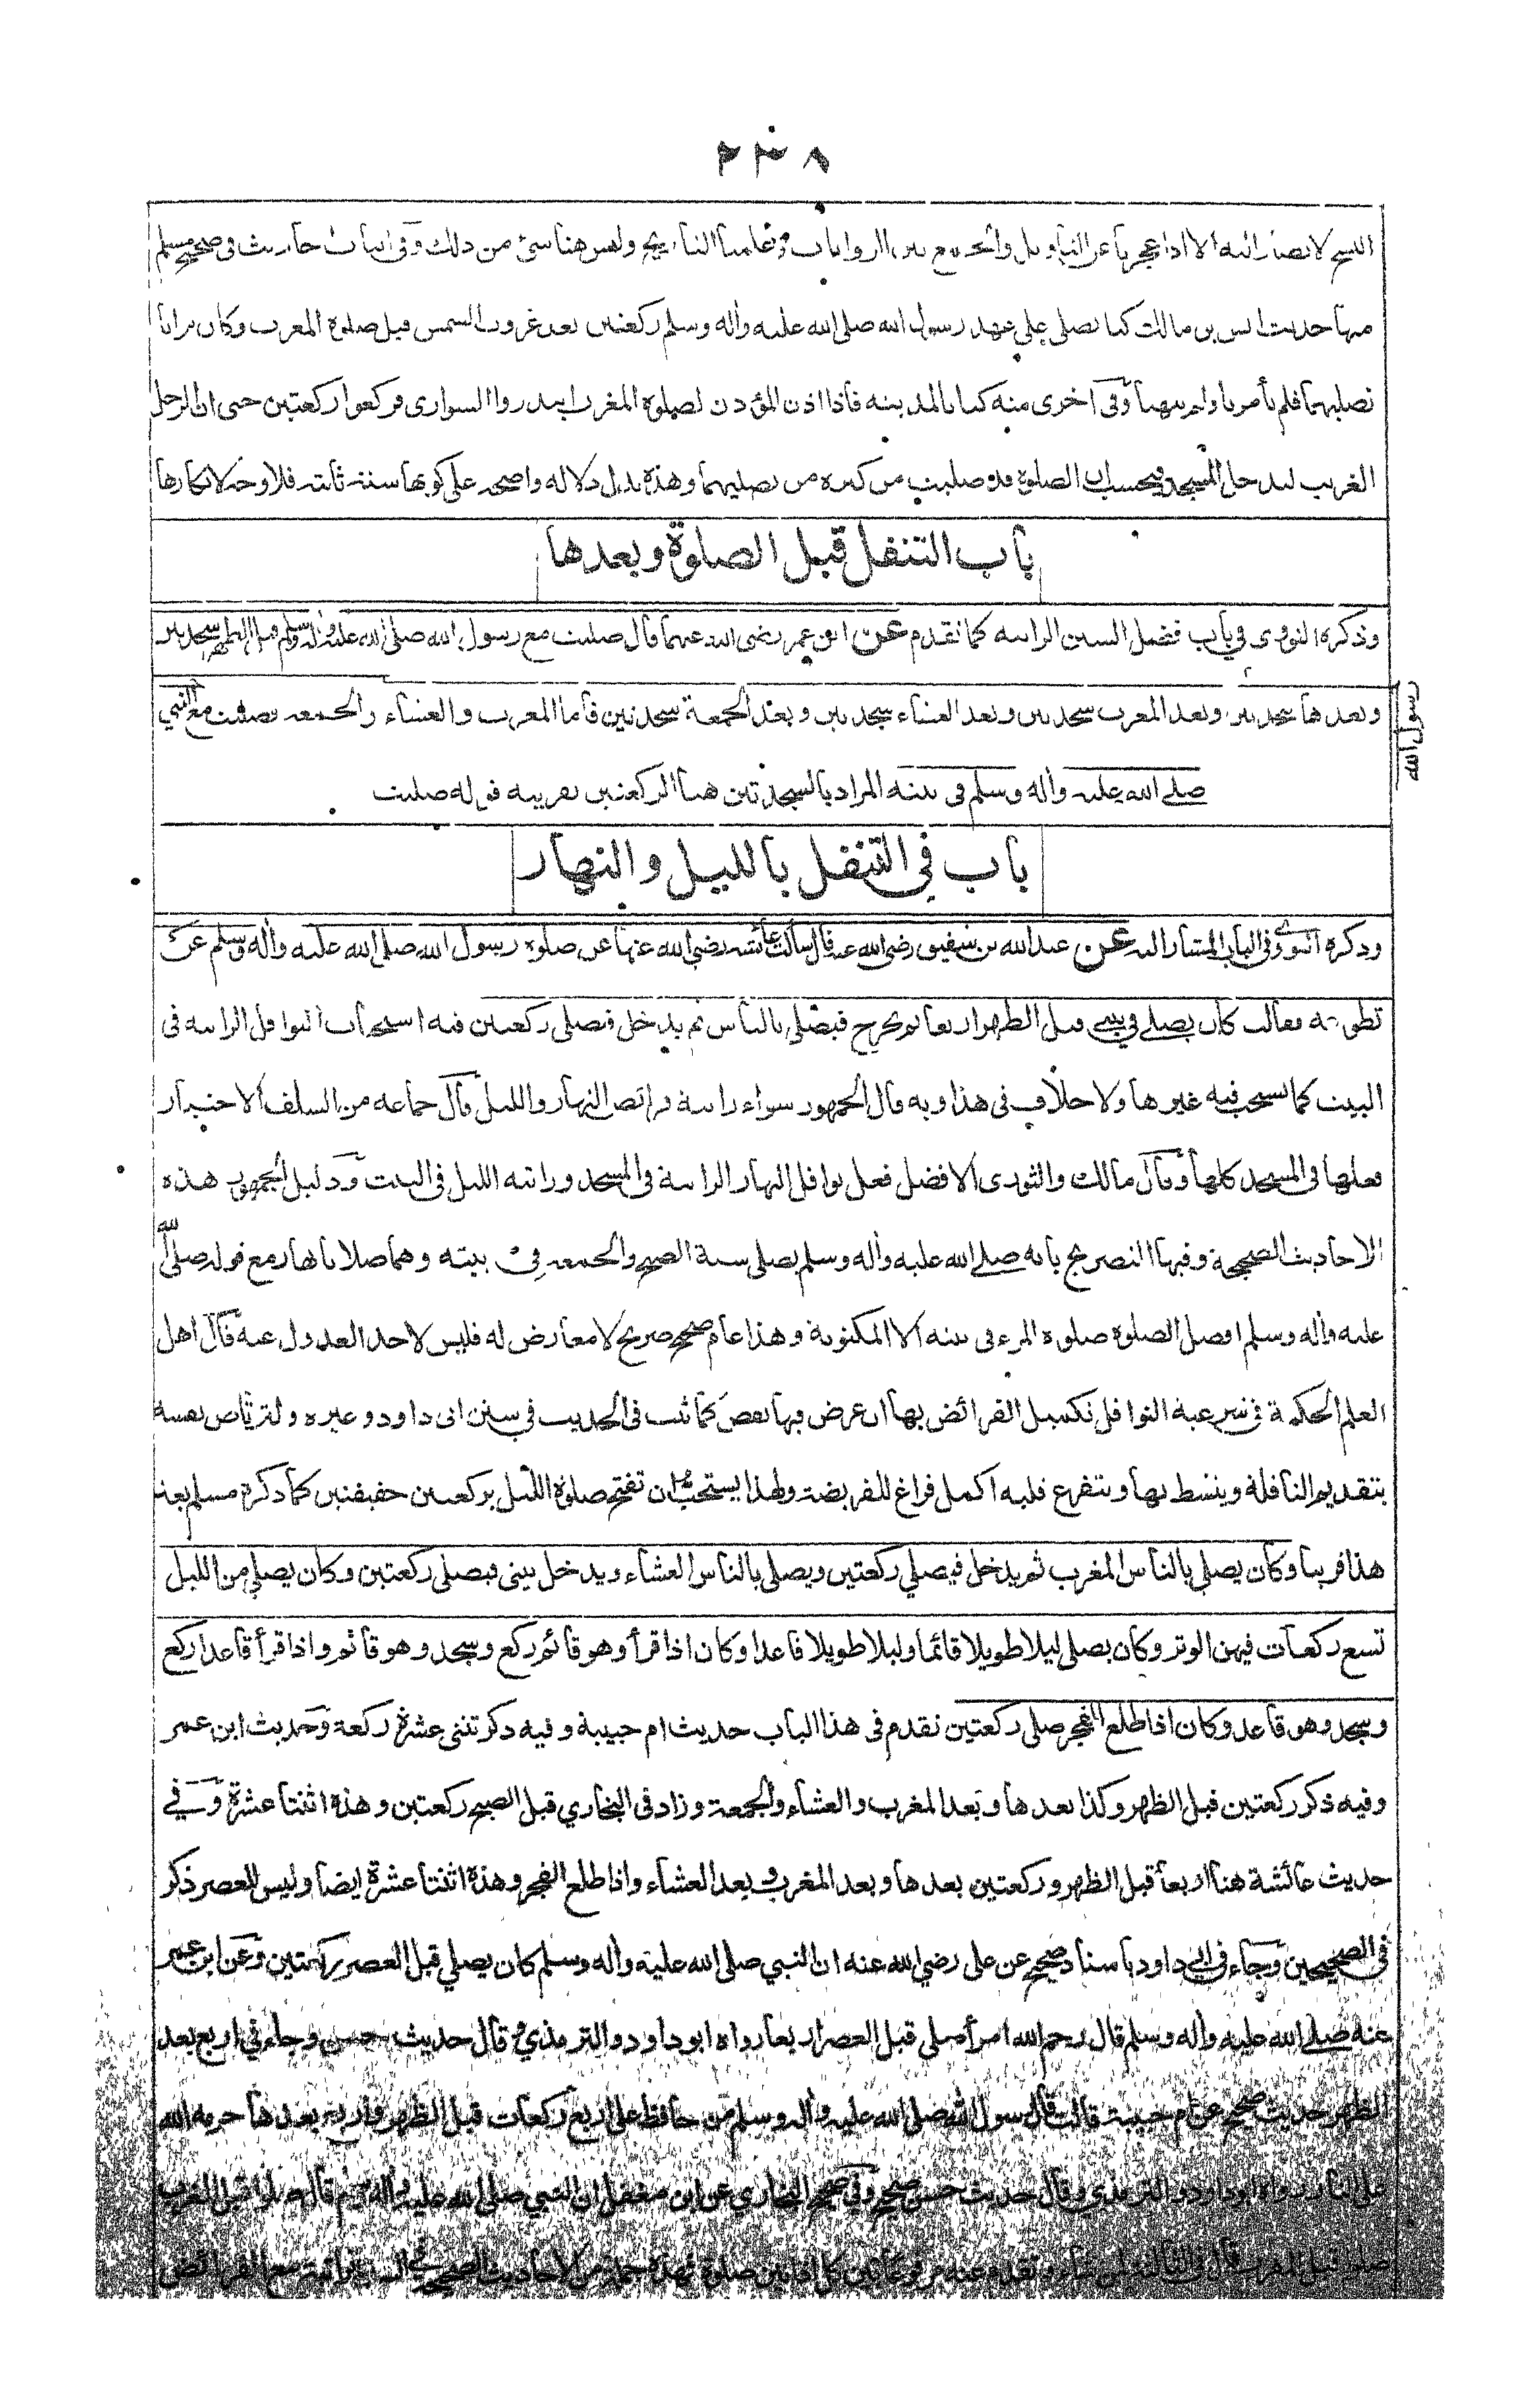 ٢٣٨
النسخ لا يصار اليه الا اذا عجزنا عن التاويل والجمع بين الروايات وعلمنا التاريخ وليس هنا شئ من ذلك وفي الباب احاديث في صحيح مسلم
منها حديث انس بن مالك كنا نصلي على عهد رسول الله صلى الله عليه وأله وسلم ركعتين بعد غروب الشمس قبل صلوة المغرب وكان يرانا
نصليهما فلم يأمرنا ولم ينهنا وفي اخرى منه كنا بالمدينة فاذا اذن المؤذن لصلوة المغرب ابتدروا السواري فركعوا ركعتين حتى ان الرجل
الغريب ليدخل المسجد فيحسب ان الصلوة قد صليت من كثرة من يصليهما وهذه تدل دلالة واضحة على كونها سنة ثابتة فلا وجه لانكارها
باب التنفل قبل الصلوة وبعدها
وذكره النووي في باب فضل السنن الراتبة كما تقدم عن ابن عمر رضي الله عنهما قال صليت مع رسول الله صلى الله عليه وأله وسلم قبل الظهر سجدتين
وبعدها سجدتين وبعد المغرب سجدتين وبعد العشاء سجدتين وبعد الجمعة سجدتين فأما المغرب والعشاء والجمعة فصليت مع النبي
رسول الله
صلى الله عليه وأله وسلم في بيته المراد بالسجدتين هنا الركعتين بقرينة قوله صليت
باب في التنفل بالليل والنهار
وذكره النووي في الباب المشار اليه عن عبد الله بن شقيق رضي الله عنه قال سألت عائشة رضي الله عنها عن صلوة رسول الله صلى الله عليه وأله وسلم عن
تطوعه فقالت كان يصلي في بيتي قبل الظهر اربعا ثم يخرج فيصلي بالناس ثم يدخل فيصلي ركعتين فيه استحباب النوافل الراتبة في
البيت كما تستحب فيه غيرها ولا خلاف في هذا وبه قال الجمهور سواء راتبة فرائض النهار والليل قال جماعة من السلف الاختيار
فعلها في المسجد كلها وقال مالك والثوري الافضل فعل نوافل النهار الراتبة في المسجد وراتبة الليل في البيت ودليل الجمهور هذه
الاحاديث الصحيحة وفيها التصريح بانه صلى الله عليه وأله وسلم يصلي سنة الصبح والجمعة في بيته وهما صلاتا نهار مع قوله صلى الله
عليه وأله وسلم افضل الصلوة صلوة المرء في بيته الا المكتوبة وهذا عام صحيح صريح لا معارض له فليس لاحد العدول عنه قال اهل
العلم الحكمة في شرعية النوافل تكميل الفرائض بها ان عرض فيها نقص كما ثبت في الحديث في سنن ابي داود وغيره ولترتاض نفسه
بتقديم النافلة وينشط بها ويتفرغ قلبه اكمل فراغ للفريضة ولهذا يستحب ان تفتح صلوة الليل بركعتين خفيفتين كما ذكره مسلم بعد
هذا قريبا وكان يصلي بالناس المغرب ثم يدخل فيصلي ركعتين ويصلي بالناس العشاء ويدخل بيتي فيصلي ركعتين وكان يصلي من الليل
تسع ركعات فيهن الوتر وكان يصلي ليلا طويلا قائما وليلا طويلا قاعدا وكان اذا قرأ وهو قائم ركع وسجد وهو قائم واذا قرأ قاعدا ركع
وسجد وهو قاعد وكان اذا طلع الفجر صلى ركعتين تقدم في هذا الباب حديث ام حبيبة وفيه ذكر ثنتي عشرة ركعة وحديث ابن عمر
وفيه ذكر ركعتين قبل الظهر وكذا بعدها وبعد المغرب والعشاء والجمعة وزاد في البخاري قبل الصبح ركعتين وهذه اثنتا عشرة وفي
حديث عائشة هنا اربعا قبل الظهر وركعتين بعدها وبعد المغرب وبعد العشاء واذا طلع الفجر وهذه اثنتا عشرة ايضا وليس للعصر ذكر
في الصحيحين وجاء في ابي داود باسناد صحيح عن علي رضي الله عنه ان النبي صلى الله عليه وأله وسلم كان يصلي قبل العصر ركعتين وعن ابن عمر
عنه صلى الله عليه وأله وسلم قال رحم الله امرأ صلى قبل العصر اربعا رواه ابو داود والترمذي وقال حديث حسن وجاء في اربع بعد
الظهر حديث صحيح عن ام حبيبة قالت قال رسول الله صلى الله عليه وأله وسلم من حافظ على اربع ركعات قبل الظهر واربع بعدها حرمه الله
على النار رواه ابو داود والترمذي وقال حديث حسن صحيح وفي صحيح البخاري عن ابن مغفل ان النبي صلى الله عليه وأله وسلم قال صلوا قبل المغرب
صلوا قبل المغرب قال في الثالثة لمن شاء وتقدم عنه مرفوعا بين كل اذانين صلوة فهذه جملة من الاحاديث الصحيحة في السنن الراتبة مع الفرائض